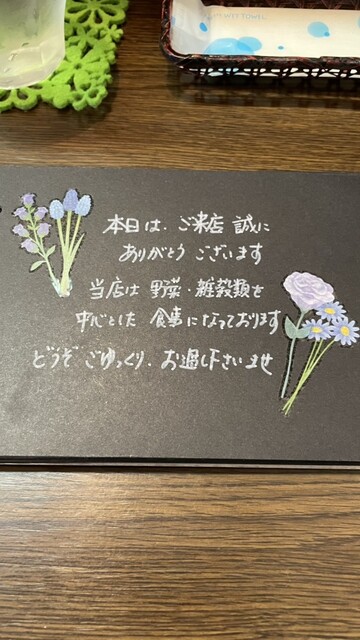 WET TOWEL
本日は、ご来店 誠に
ありがとう ございます
当店は 野菜・雑穀類を
中心とした 食事になっております
どうぞ ごゆっくり、お過し下さいませ